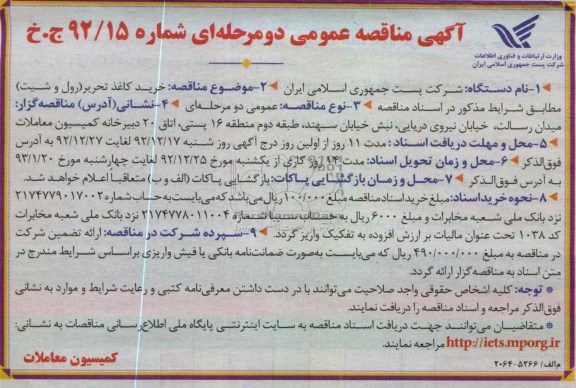 آگهی مناقصه عمومی دومرحله‌ای شماره ۹۲/۱۵ ج.خ
وزارت ارتباطات و فناوری اطلاعات
شرکت پست جمهوری اسلامی ایران
۱-نام دستگاه: شرکت پست جمهوری اسلامی ایران ۲-موضوع مناقصه: خرید کاغذ تحریر(رول و شیت)
مطابق شرایط مذکور در اسناد مناقصه ۳-نوع مناقصه: عمومی دو مرحله‌ای ۴-نشانی(آدرس) مناقصه‌گزار:
میدان رسالت، خیابان نیروی دریایی، نبش خیابان سهند، طبقه دوم منطقه ۱۶ پستی، اتاق ۲۰ دبیرخانه کمیسیون معاملات
۵-محل و مهلت دریافت اسناد: مدت ۱۱ روز از اولین روز درج آگهی روز شنبه ۹۲/۱۲/۱۷ لغایت ۹۲/۱۲/۲۷ به آدرس
فوق‌الذکر ۶-محل و زمان تحویل اسناد: مدت ۱۴ روز کاری از یکشنبه مورخ ۹۲/۱۲/۲۵ لغایت چهارشنبه مورخ ۹۳/۱/۲۰
به آدرس فوق‌الذکر ۷-محل و زمان بازگشایی پاکات: بازگشایی پاکات (الف و ب) متعاقباً اعلام خواهد شد.
۸-نحوه خرید اسناد: مبلغ خرید اسناد مناقصه مبلغ ۱۰۰/۰۰۰ ریال می‌باشد که می‌بایست به حساب شماره ۲۱۷۴۷۷۹۰۱۷۰۰۲
نزد بانک ملی شعبه مخابرات و مبلغ ۶۰۰۰ ریال به حساب سیبا شماره ۲۱۷۴۷۷۸۰۱۱۰۰۴ نزد بانک ملی شعبه مخابرات
کد ۱۰۳۸ تحت عنوان مالیات بر ارزش افزوده به تفکیک واریز گردد. ۹-سپرده شرکت در مناقصه: ارائه تضمین شرکت
در مناقصه به مبلغ ۴۹۰/۰۰۰/۰۰۰ ریال که می‌بایست به‌صورت ضمانت‌نامه بانکی یا فیش واریزی براساس شرایط مندرج در
متن اسناد به مناقصه‌گزار ارائه گردد.
* توجه: کلیه اشخاص حقوقی واجد صلاحیت می‌توانند با در دست داشتن معرفی‌نامه کتبی و رعایت شرایط و موارد به نشانی
فوق‌الذکر مراجعه و اسناد مناقصه را دریافت نمایند.
* متقاضیان می‌توانند جهت دریافت اسناد مناقصه به سایت اینترنتی پایگاه ملی اطلاع‌رسانی مناقصات به نشانی:
http://iets.mporg.ir مراجعه نمایند.
کمیسیون معاملات
م‌الف/ ۵۲۶۶-۲۰۶۴